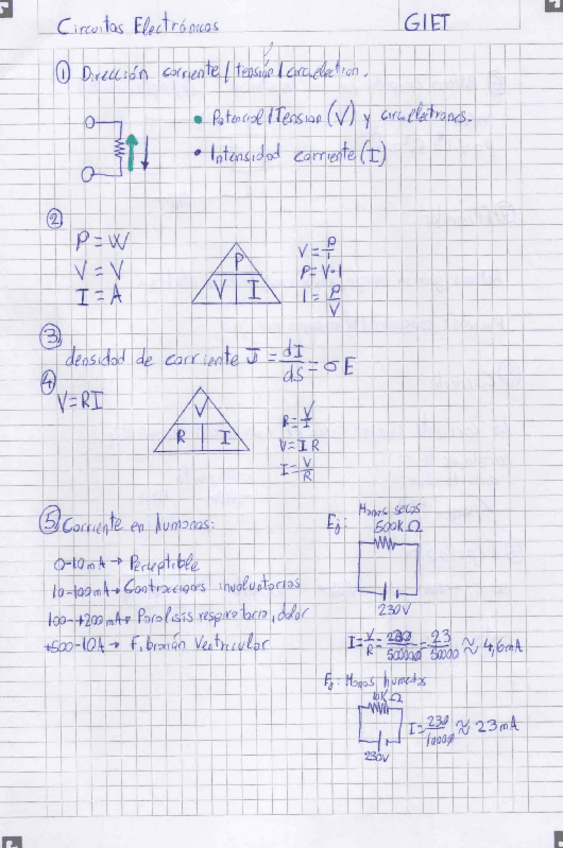 Circuitos Electrónicos
GIET
① Dirección corriente/tensión/circ.electron.
• Potencial/Tensión (V) y circ.electrones.
• Intensidad corriente (I)
②
P = W
V = V
I = A
P
V I
V = P/I
P = V·I
I = P/V
③
densidad de corriente J = dI/dS = σ E
④
V = RI
V
R I
R = V/I
V = I R
I = V/R
⑤ Corriente en humanos:
0-10mA → Perceptible
10-100mA → Contracciones involuntarias
→ Paralisis respiratoria, dolor
+500-10A → Ventricular
Ej: Manos secas
500K Ω
230V
I = V/R = 230/500000 = 23/50000 ≈ 4,6mA
Ej: Manos humedas
10K Ω
230V
I = 230/10000 ≈ 23mA